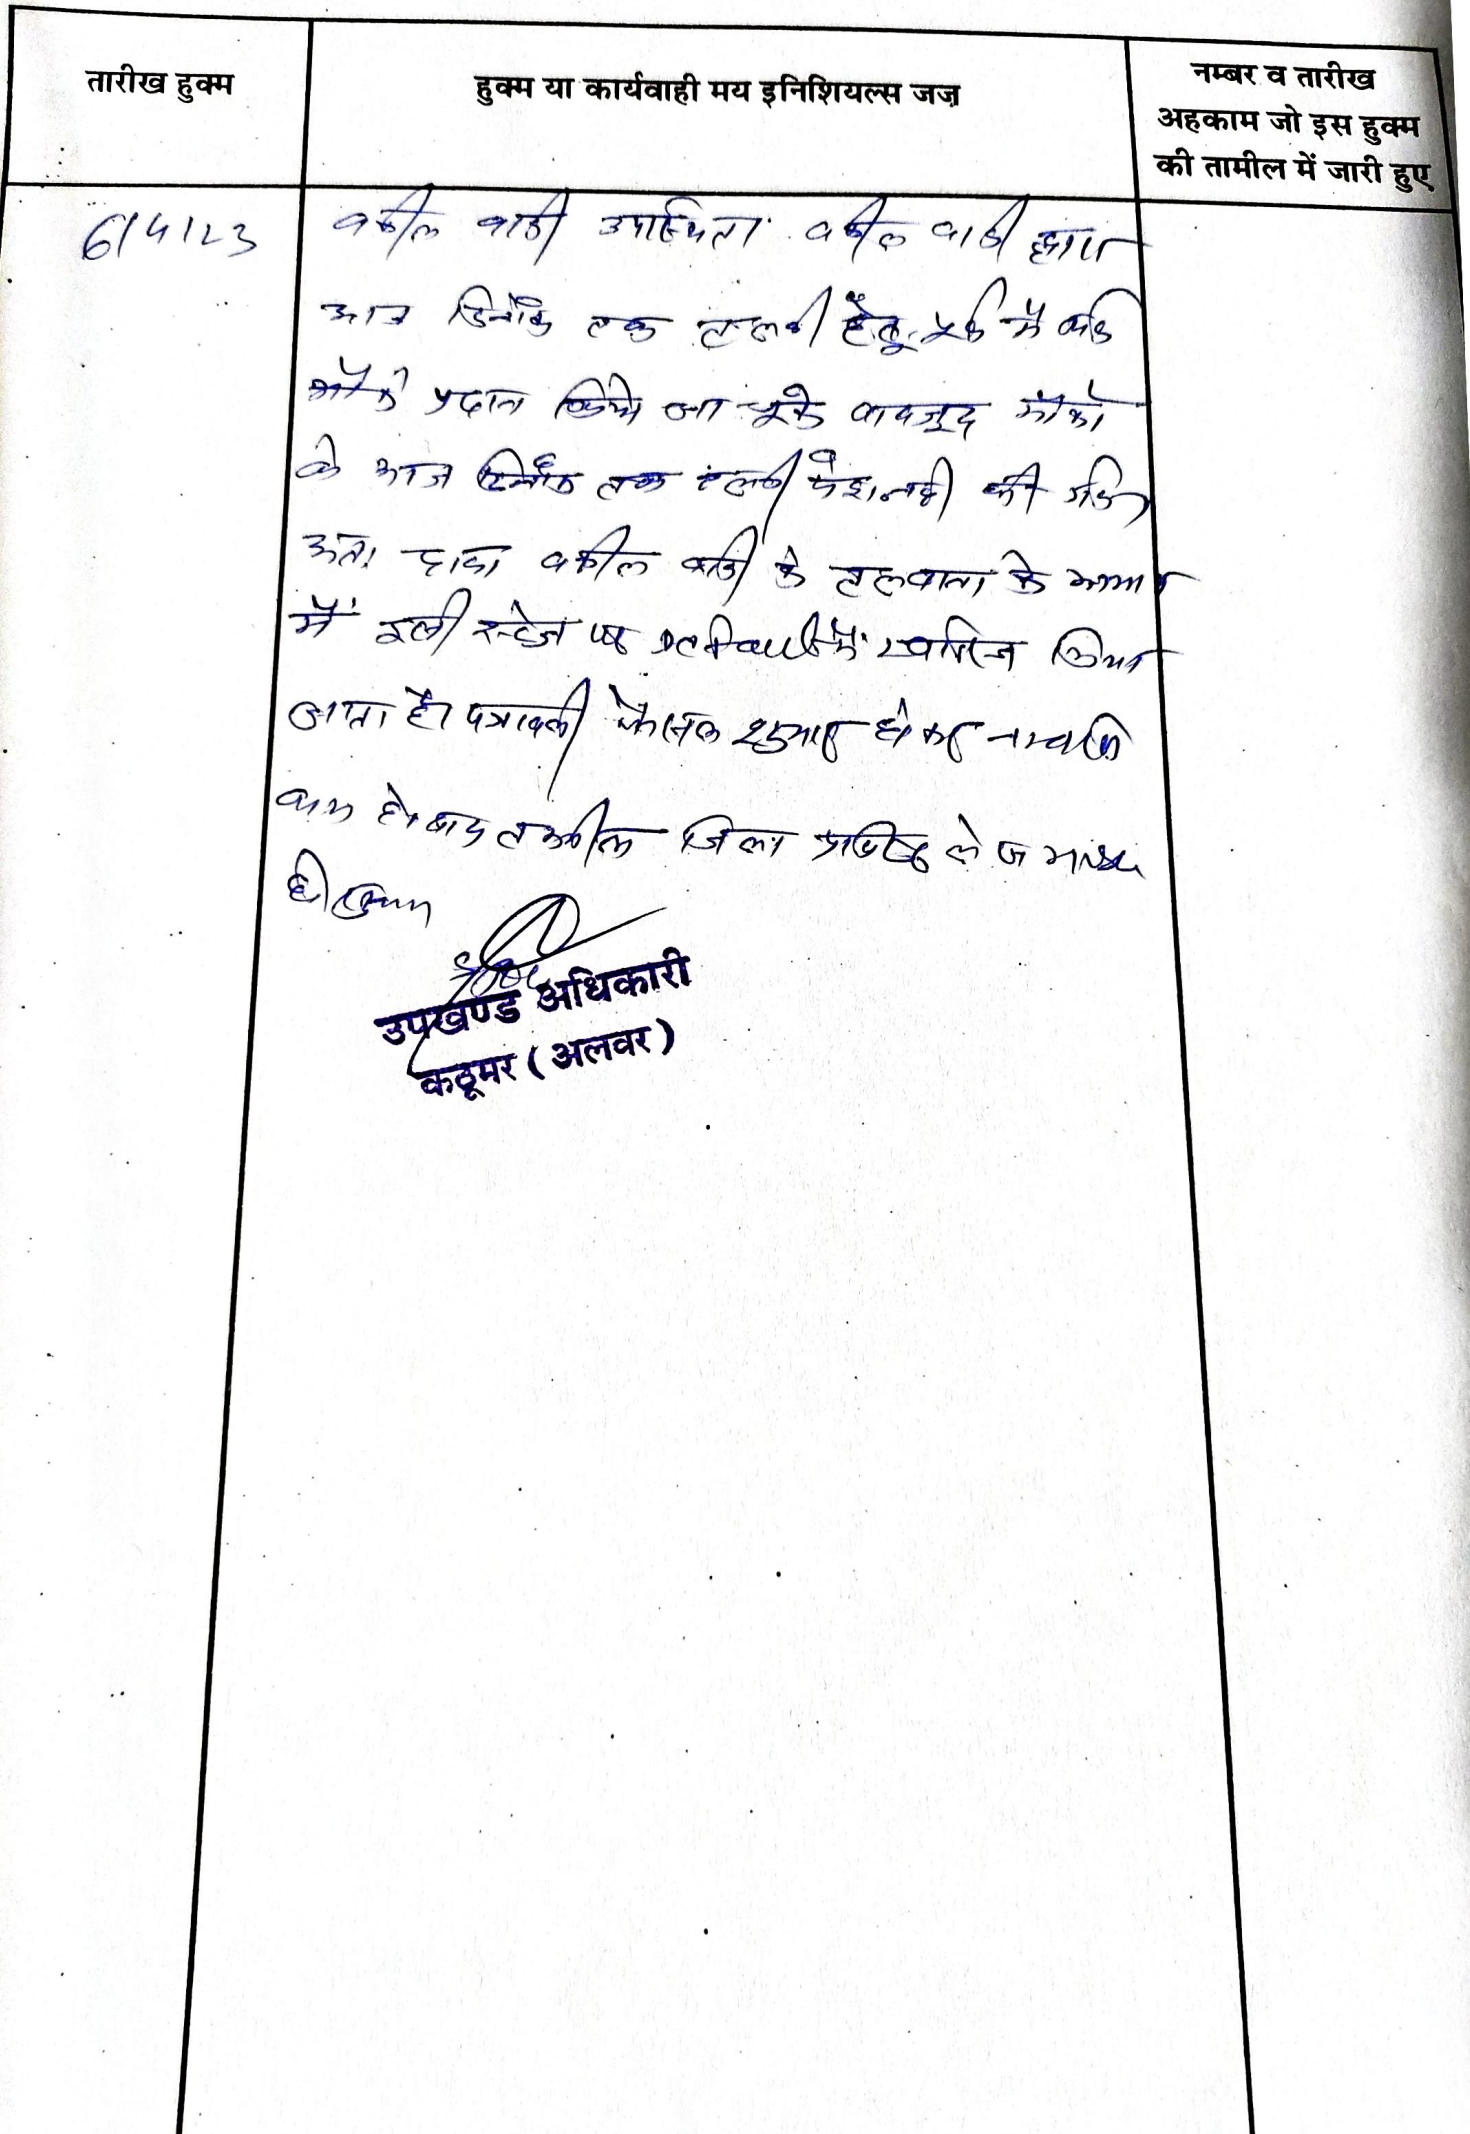 तारीख हुक्म
हुक्म या कार्यवाही मय इनिशियल्स जज
नम्बर व तारीख
अहकाम जो इस हुक्म
की तामील में जारी हुए
6/4/23
वकील वादी उपस्थित। वकील वादी द्वारा
आज दिनांक तक तलबी हेतु पूर्व में कई
मौके प्रदान किये जा चुके बावजूद मौको
के आज दिनांक तक तलबी पेश नही की गई
अतः दावा वकील वादी के तलवाना के अभाव
में इसी स्टेज पर खारिज किया
जाता है। पत्रावली फैसल शुमार होकर
कम हो बाद तकमील जिला
हो
उपखण्ड अधिकारी
कठूमर (अलवर)